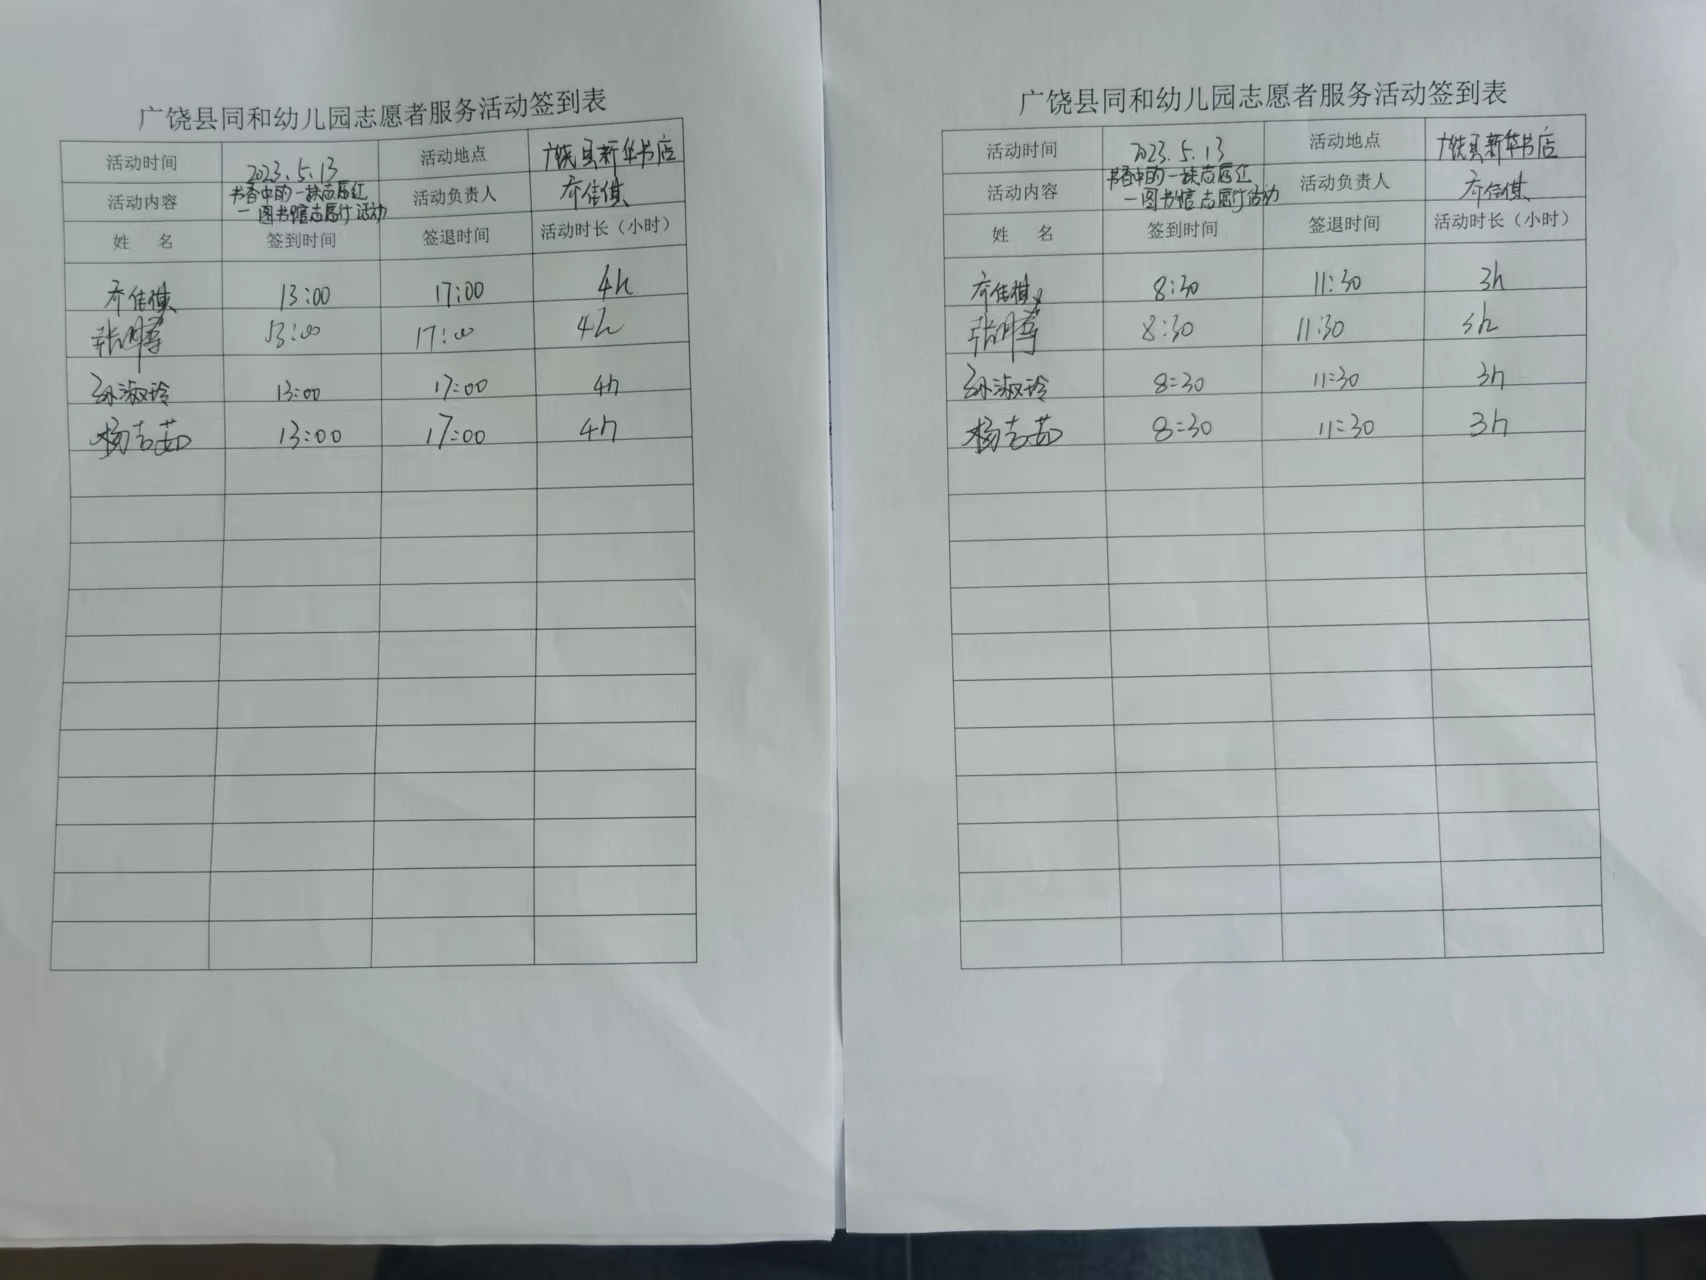 广饶县同和幼儿园志愿者服务活动签到表
活动时间 2023.5.13 活动地点 广饶县新华书店
活动内容 书香中的一抹志愿红
一图书馆志愿行活动 活动负责人 乔佳琪
姓 名 签到时间 签退时间 活动时长（小时）
乔佳琪 13:00 17:00 4h
张 13:00 17:00 4h
孙淑玲 13:00 17:00 4h
杨志茹 13:00 17:00 4h
广饶县同和幼儿园志愿者服务活动签到表
活动时间 2023.5.13 活动地点 广饶县新华书店
活动内容 书香中的一抹志愿红
一图书馆志愿行活动 活动负责人 乔佳琪
姓 名 签到时间 签退时间 活动时长（小时）
乔佳琪 8:30 11:30 3h
张 8:30 11:30 3h
孙淑玲 8:30 11:30 3h
杨志茹 8:30 11:30 3h